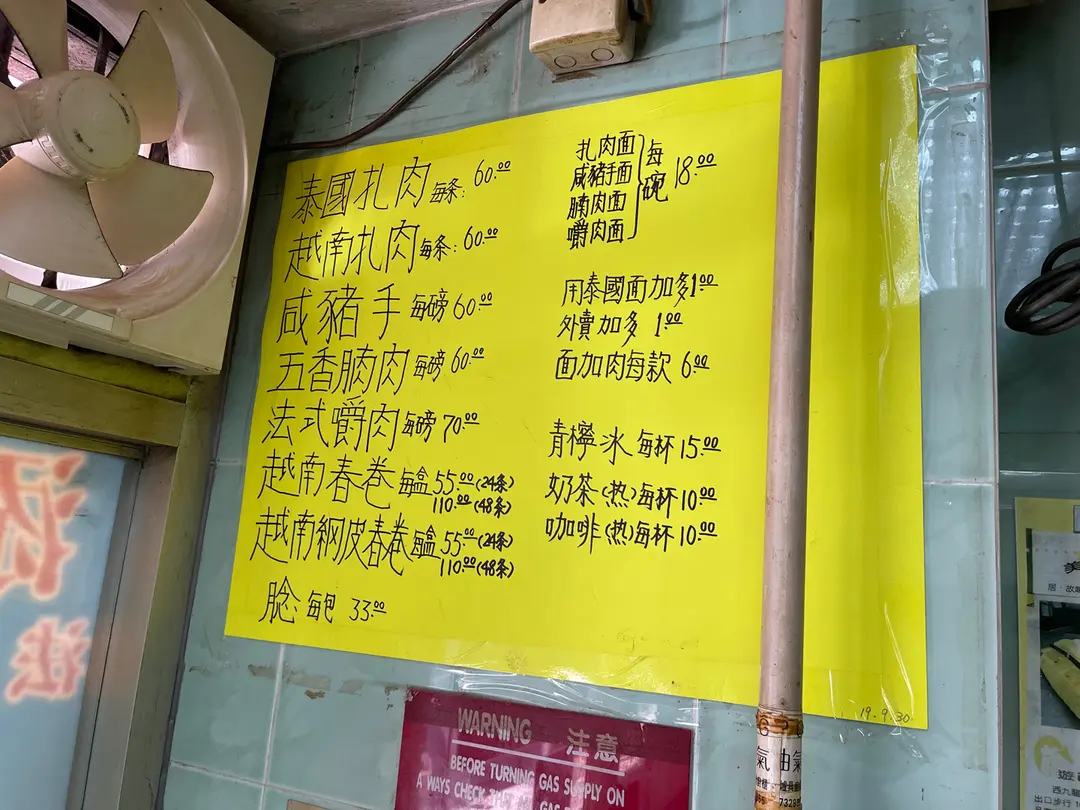 泰國扎肉 每条: 60.00
越南扎肉 每条: 60.00
咸豬手 每磅 60.00
五香腩肉 每磅 60.00
法式嚼肉 每磅 70.00
越南春卷 每盒 55.00 (24条)
110.00 (48条)
越南網皮春卷 每盒 55.00 (24条)
110.00 (48条)
腍 每包 33.00
扎肉面
咸豬手面
腩肉面
嚼肉面
每碗 18.00
用泰國面加多1.00
外賣加多 1.00
面加肉每款 6.00
青檸冰 每杯 15.00
奶茶(热)每杯 10.00
咖啡(热)每杯 10.00
19-9-30
WARNING 注意
BEFORE TURNING GAS SUPPLY ON
法